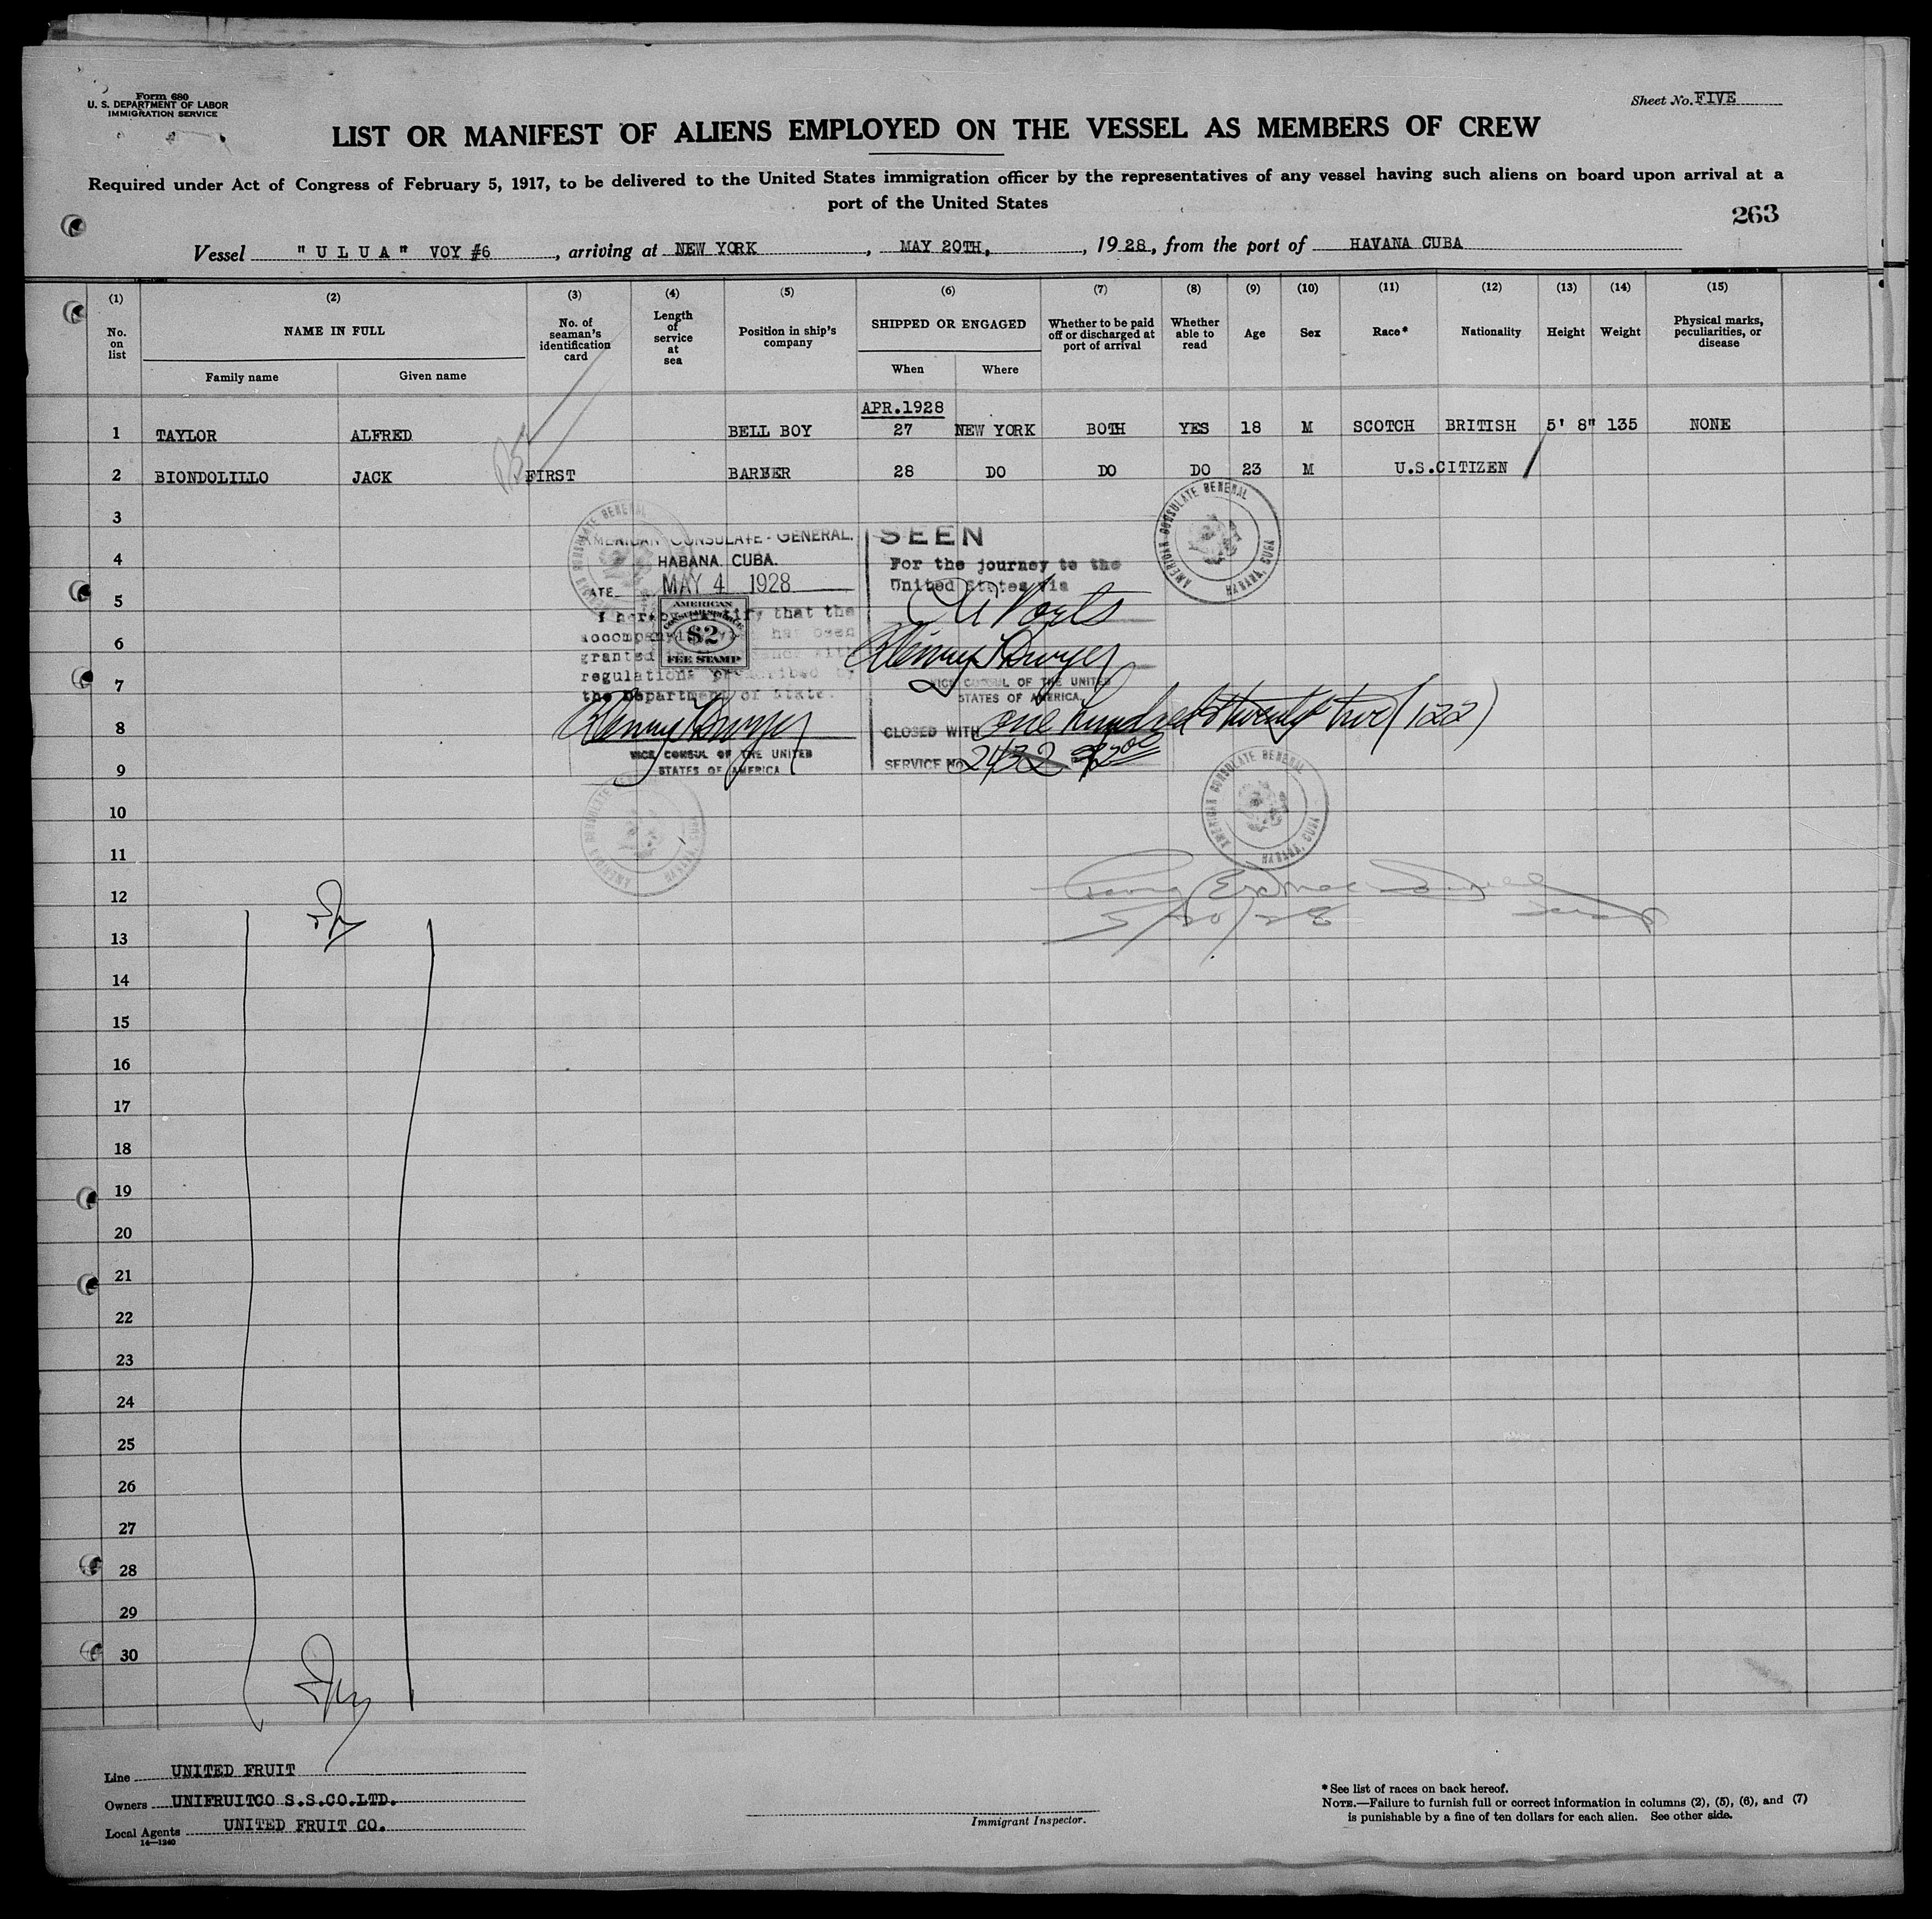 Form 680
U. S. DEPARTMENT OF LABOR
IMMIGRATION SERVICE
Sheet No. FIVE
LIST OR MANIFEST OF ALIENS EMPLOYED ON THE VESSEL AS MEMBERS OF CREW
Required under Act of Congress of February 5, 1917, to be delivered to the United States immigration officer by the representatives of any vessel having such aliens on board upon arrival at a
port of the United States
263
Vessel "ULUA" VOY #6, arriving at NEW YORK, MAY 20TH,, 1928, from the port of HAVANA CUBA
(1) (2) (3) (4) (5) (6) (7) (8) (9) (10) (11) (12) (13) (14) (15)
No. on list NAME IN FULL No. of seaman's identification card Length of service at sea Position in ship's company SHIPPED OR ENGAGED Whether to be paid off or discharged at port of arrival Whether able to read Age Sex Race* Nationality Height Weight Physical marks, peculiarities, or disease
Family name Given name When Where
APR.1928
1 TAYLOR ALFRED BELL BOY 27 NEW YORK BOTH YES 18 M SCOTCH BRITISH 5' 8" 135 NONE
2 BIONDOLILLO JACK FIRST BARBER 28 DO DO DO 23 M U.S.CITIZEN
3
4
5
6
7
8
9
10
11
12
13
14
15
16
17
18
19
20
21
22
23
24
25
26
27
28
29
30
AMERICAN CONSULATE GENERAL
HAVANA, CUBA
AMERICAN CONSULATE-GENERAL,
HABANA, CUBA.
DATE MAY 4 1928
I hereby certify that the
accompanying has been
granted in with
regulations prescribed by
the Department of State.
AMERICAN
CONSULAR SERVICE
$2
FEE STAMP
Henry Dwyer
VICE CONSUL OF THE UNITED
STATES OF AMERICA
SEEN
For the journey to the
United States via
Ports
Henry Dwyer
VICE CONSUL OF THE UNITED
STATES OF AMERICA.
CLOSED WITH one hundred & twenty two (122)
SERVICE No. 2432 $2.00
AMERICAN CONSULATE GENERAL
HAVANA, CUBA
AMERICAN CONSULATE GENERAL
HAVANA, CUBA
AMERICAN CONSULATE GENERAL
HAVANA, CUBA
5/20/28
Line UNITED FRUIT
Owners UNIFRUITCO S.S.CO.LTD.
Local Agents UNITED FRUIT CO.
14—1240
Immigrant Inspector.
* See list of races on back hereof.
NOTE.—Failure to furnish full or correct information in columns (2), (5), (6), and (7)
is punishable by a fine of ten dollars for each alien. See other side.